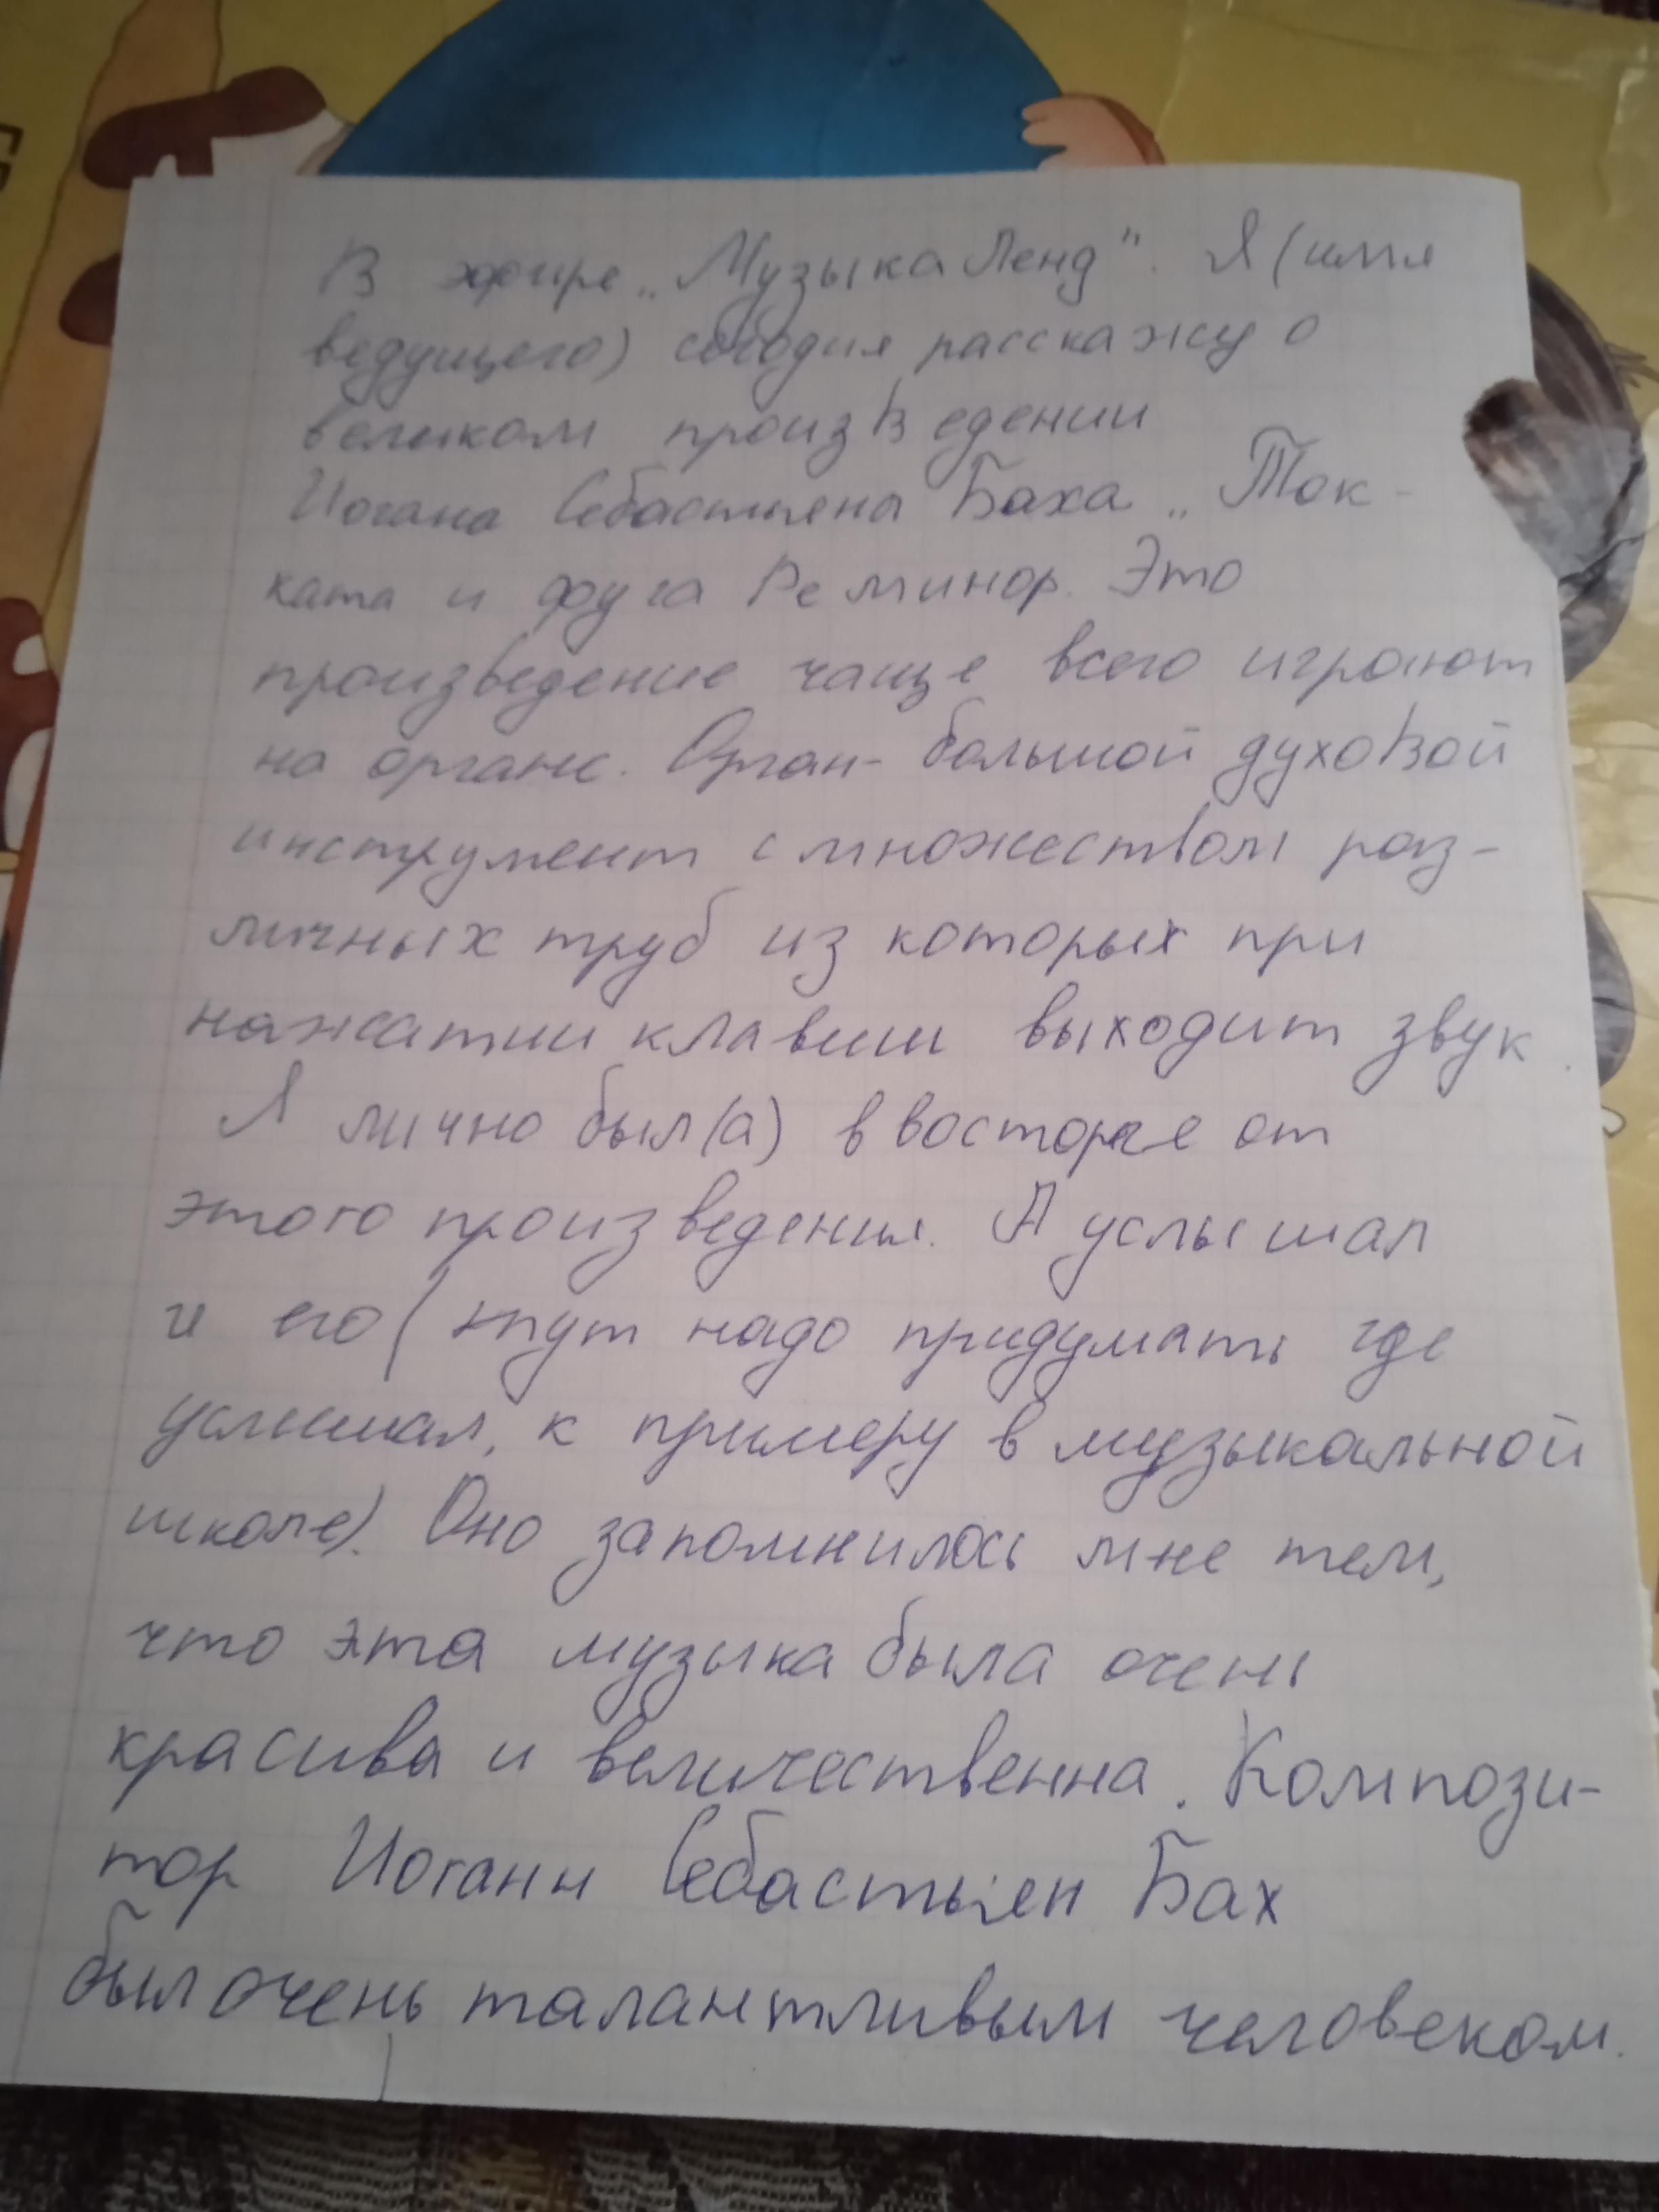 В эфире „Музыка Ленд". Я (имя
ведущего) сегодня расскажу о
великом произведении
Иогана Себастьена Баха „Ток-
ката и фуга Ре минор. Это
произведение чаще всего играют
на органе. Орган- большой духовой
инструмент с множеством раз-
личных труб из которых при
нажатии клавиш выходит звук.
Я лично был(а) в восторге от
этого произведения. А услышал
и его (тут надо придумать где
услышал, к примеру в музыкальной
школе). Оно запомнилось мне тем,
что эта музыка была очень
красива и величественна. Компози-
тор Иоганн Себастьен Бах
был очень талантливым человеком.